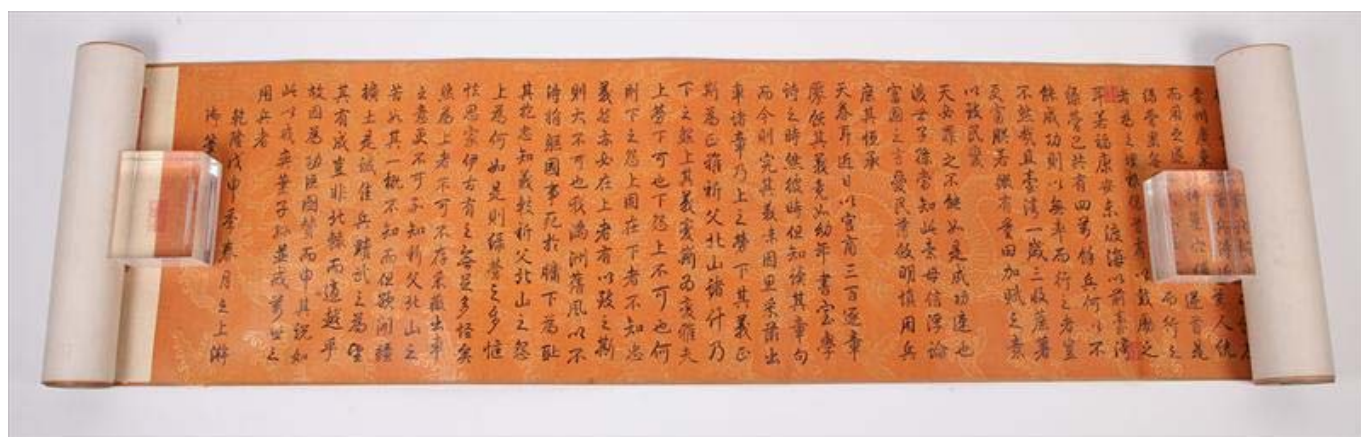 耳若福康安未渡海以前臺灣
綠營已共有四萬餘兵何以不
能成功則以無率而行之者豈
不然哉且臺灣一歲三收蔗薯
更富朕若微有量田加賦之意
以致民變
天必罪之不能如是成功速也
後世子孫當知此意毋信浮論
富國之言愛民薄斂明慎用兵
庶其恆承
天眷耳近日以宮商三百逐章
其義意如幼年書室學
詩之時然彼時但知讀其章句
而今則究其義未因思采薇出
車諸章乃上之勞下其義正
斯為正雅祈父北山諸什乃
下之怨上其義變斯為變雅夫
上勞下可也下怨上不可也何
則下之怨上固在下者不知忠
義然亦必在上者有以致之斯
則大不可也我滿洲舊風以不
得捐軀國事死於牖下為恥
其抱忠知義較祈父北山之怨
上為何如是則綠營之多恇
怯思家伊古有之無足多怪矣
然為上者不可不存采薇出車
之意更不可不知祈父北山之
苦若其一概不知而但欲開疆
擴土是誠佳兵黷武之為望
其有成豈非北轅而適越乎
故因為功臣圖贊而申其說如
此以戒奕葉子孫並戒萬世之
用兵者
乾隆戊申季春月之上澣
御筆